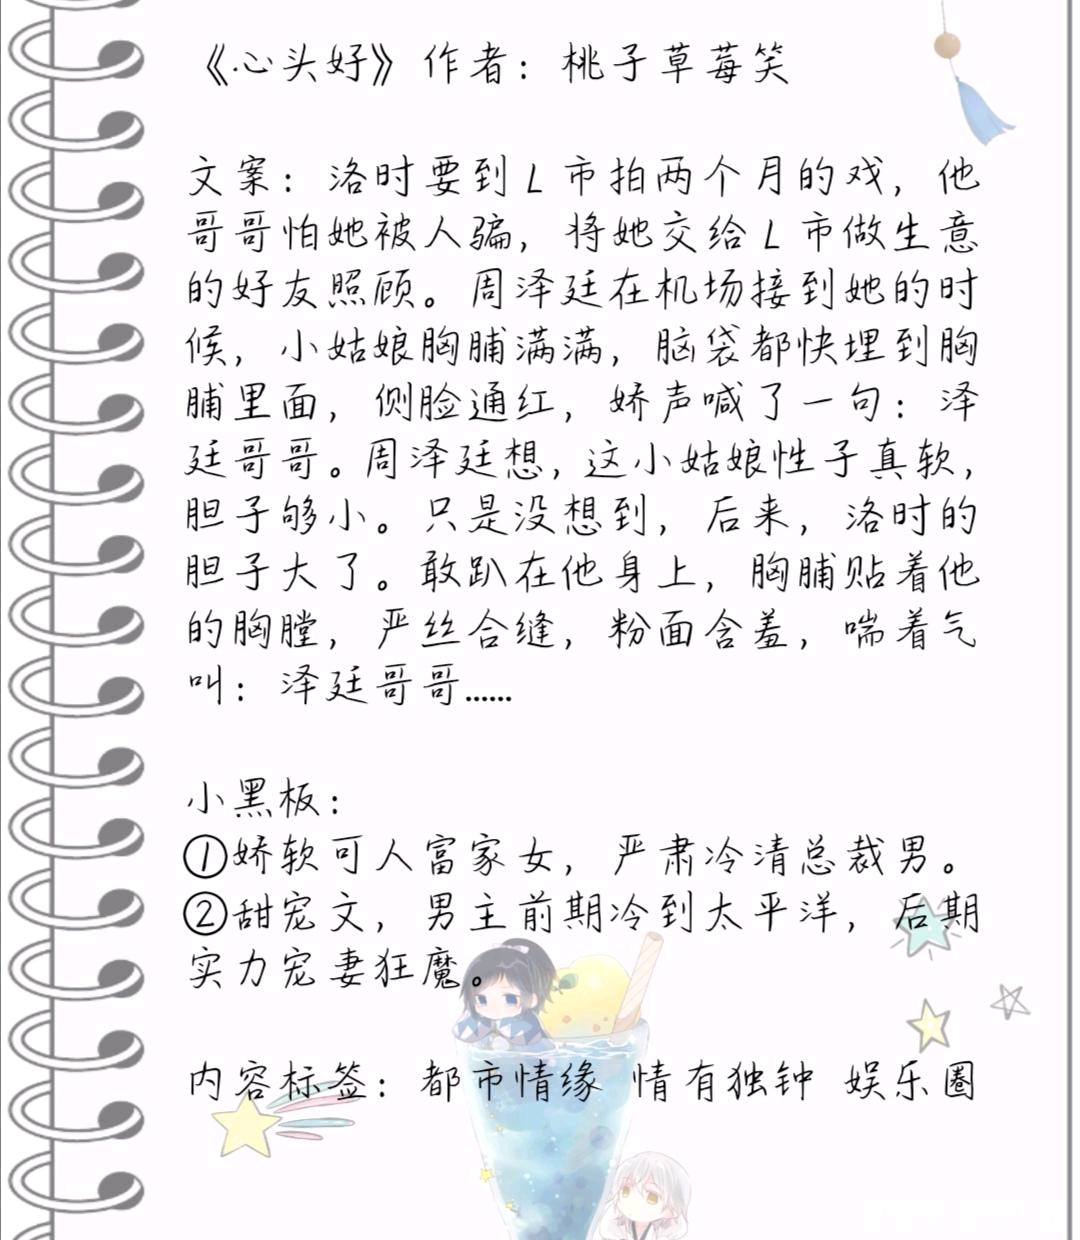 《心头好》作者：桃子草莓笑
文案：洛时要到L市拍两个月的戏，他
哥哥怕她被人骗，将她交给L市做生意
的好友照顾。周泽廷在机场接到她的时
候，小姑娘胸脯满满，脑袋都快埋到胸
脯里面，侧脸通红，娇声喊了一句：泽
廷哥哥。周泽廷想，这小姑娘性子真软，
胆子够小。只是没想到，后来，洛时的
胆子大了。敢趴在他身上，胸脯贴着他
的胸膛，严丝合缝，粉面含羞，喘着气
叫：泽廷哥哥……
小黑板：
①娇软可人富家女，严肃冷清总裁男。
②甜宠文，男主前期冷到太平洋，后期
实力宠妻狂魔。
内容标签：都市情缘 情有独钟 娱乐圈